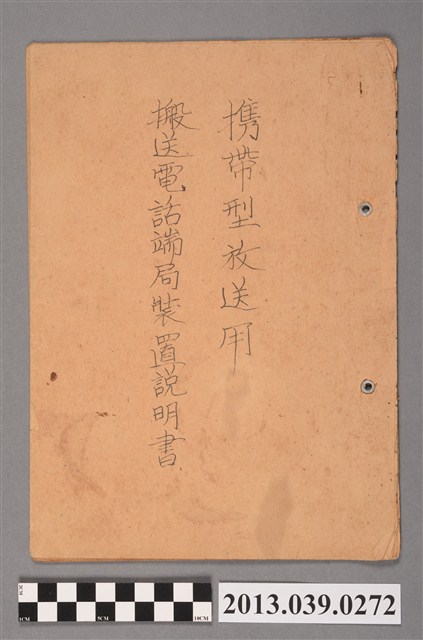 携帯型放送用
搬送電話端局裝置説明書
2013.039.0272
1CM
5CM
10CM